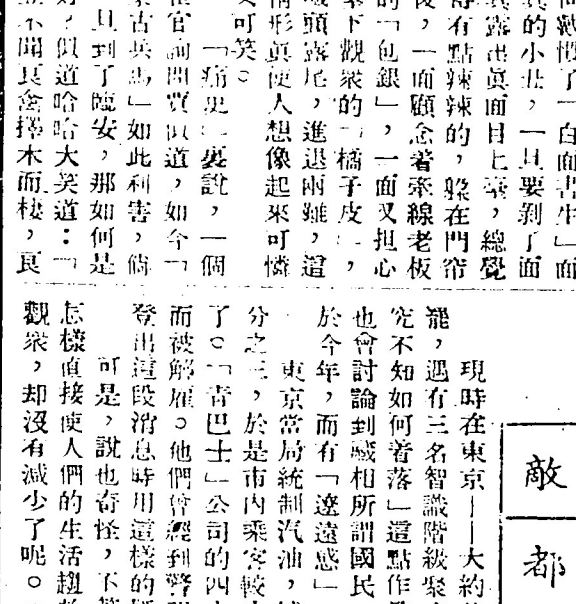 戴慣了「白面書生」面
具的小丑，一旦要剝了面
具露出眞面目上臺，總覺
有點辣辣的，躱在門帘
後，一面顧念着牽線老板
的「包銀」，一面又担心
臺下觀衆的「橘子皮」，
藏頭露尾，進退兩難，這
情形眞使人想像起來可憐
又可笑。
「痛史」裏說，一個
官詢問賈似道，如今「
蒙古兵馬」如此利害，倘
且到了臨安，那如何是
好，似道哈哈大笑道：「
不聞良禽擇木而棲，良
敵都
現時在東京——大約
罷，遇有三名智識階級聚
究不知如何着落」這點作
也會討論到藏相所謂國民
於今年，而有「遼遠感」
東京當局統制汽油，
分之三，於是市內乘客較
了。「靑巴士」公司的四
而被解雇。他們曾經到警
登出這段消息時用這樣的
可是，說也奇怪，不
怎樣直接使人們的生活趨
觀衆，却沒有減少了呢。